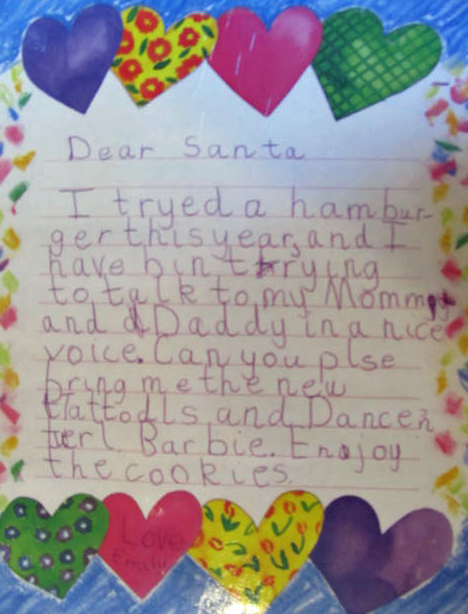 Dear Santa
I tryed a hambur-
ger this year, and I
have bin trying
to talk to my Mommy
and Daddy in a nice
voice. Can you plse
bring me the new
and Dancen
Barbie. Enojoy
the cookies.
Love
Emily